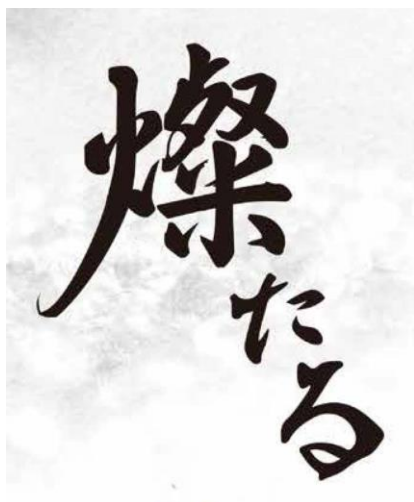 燦たる